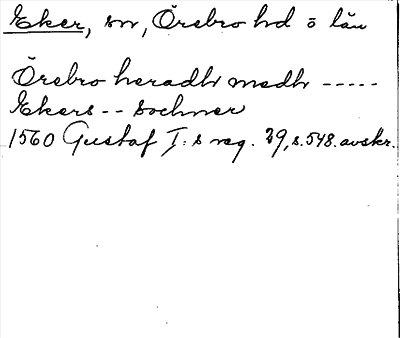 Eker, sn, Örebro hd ö län
Örebro heradh medh -----
Ekers -- sochner
1560 Gustaf I:s reg. 29, s. 548. avskr.